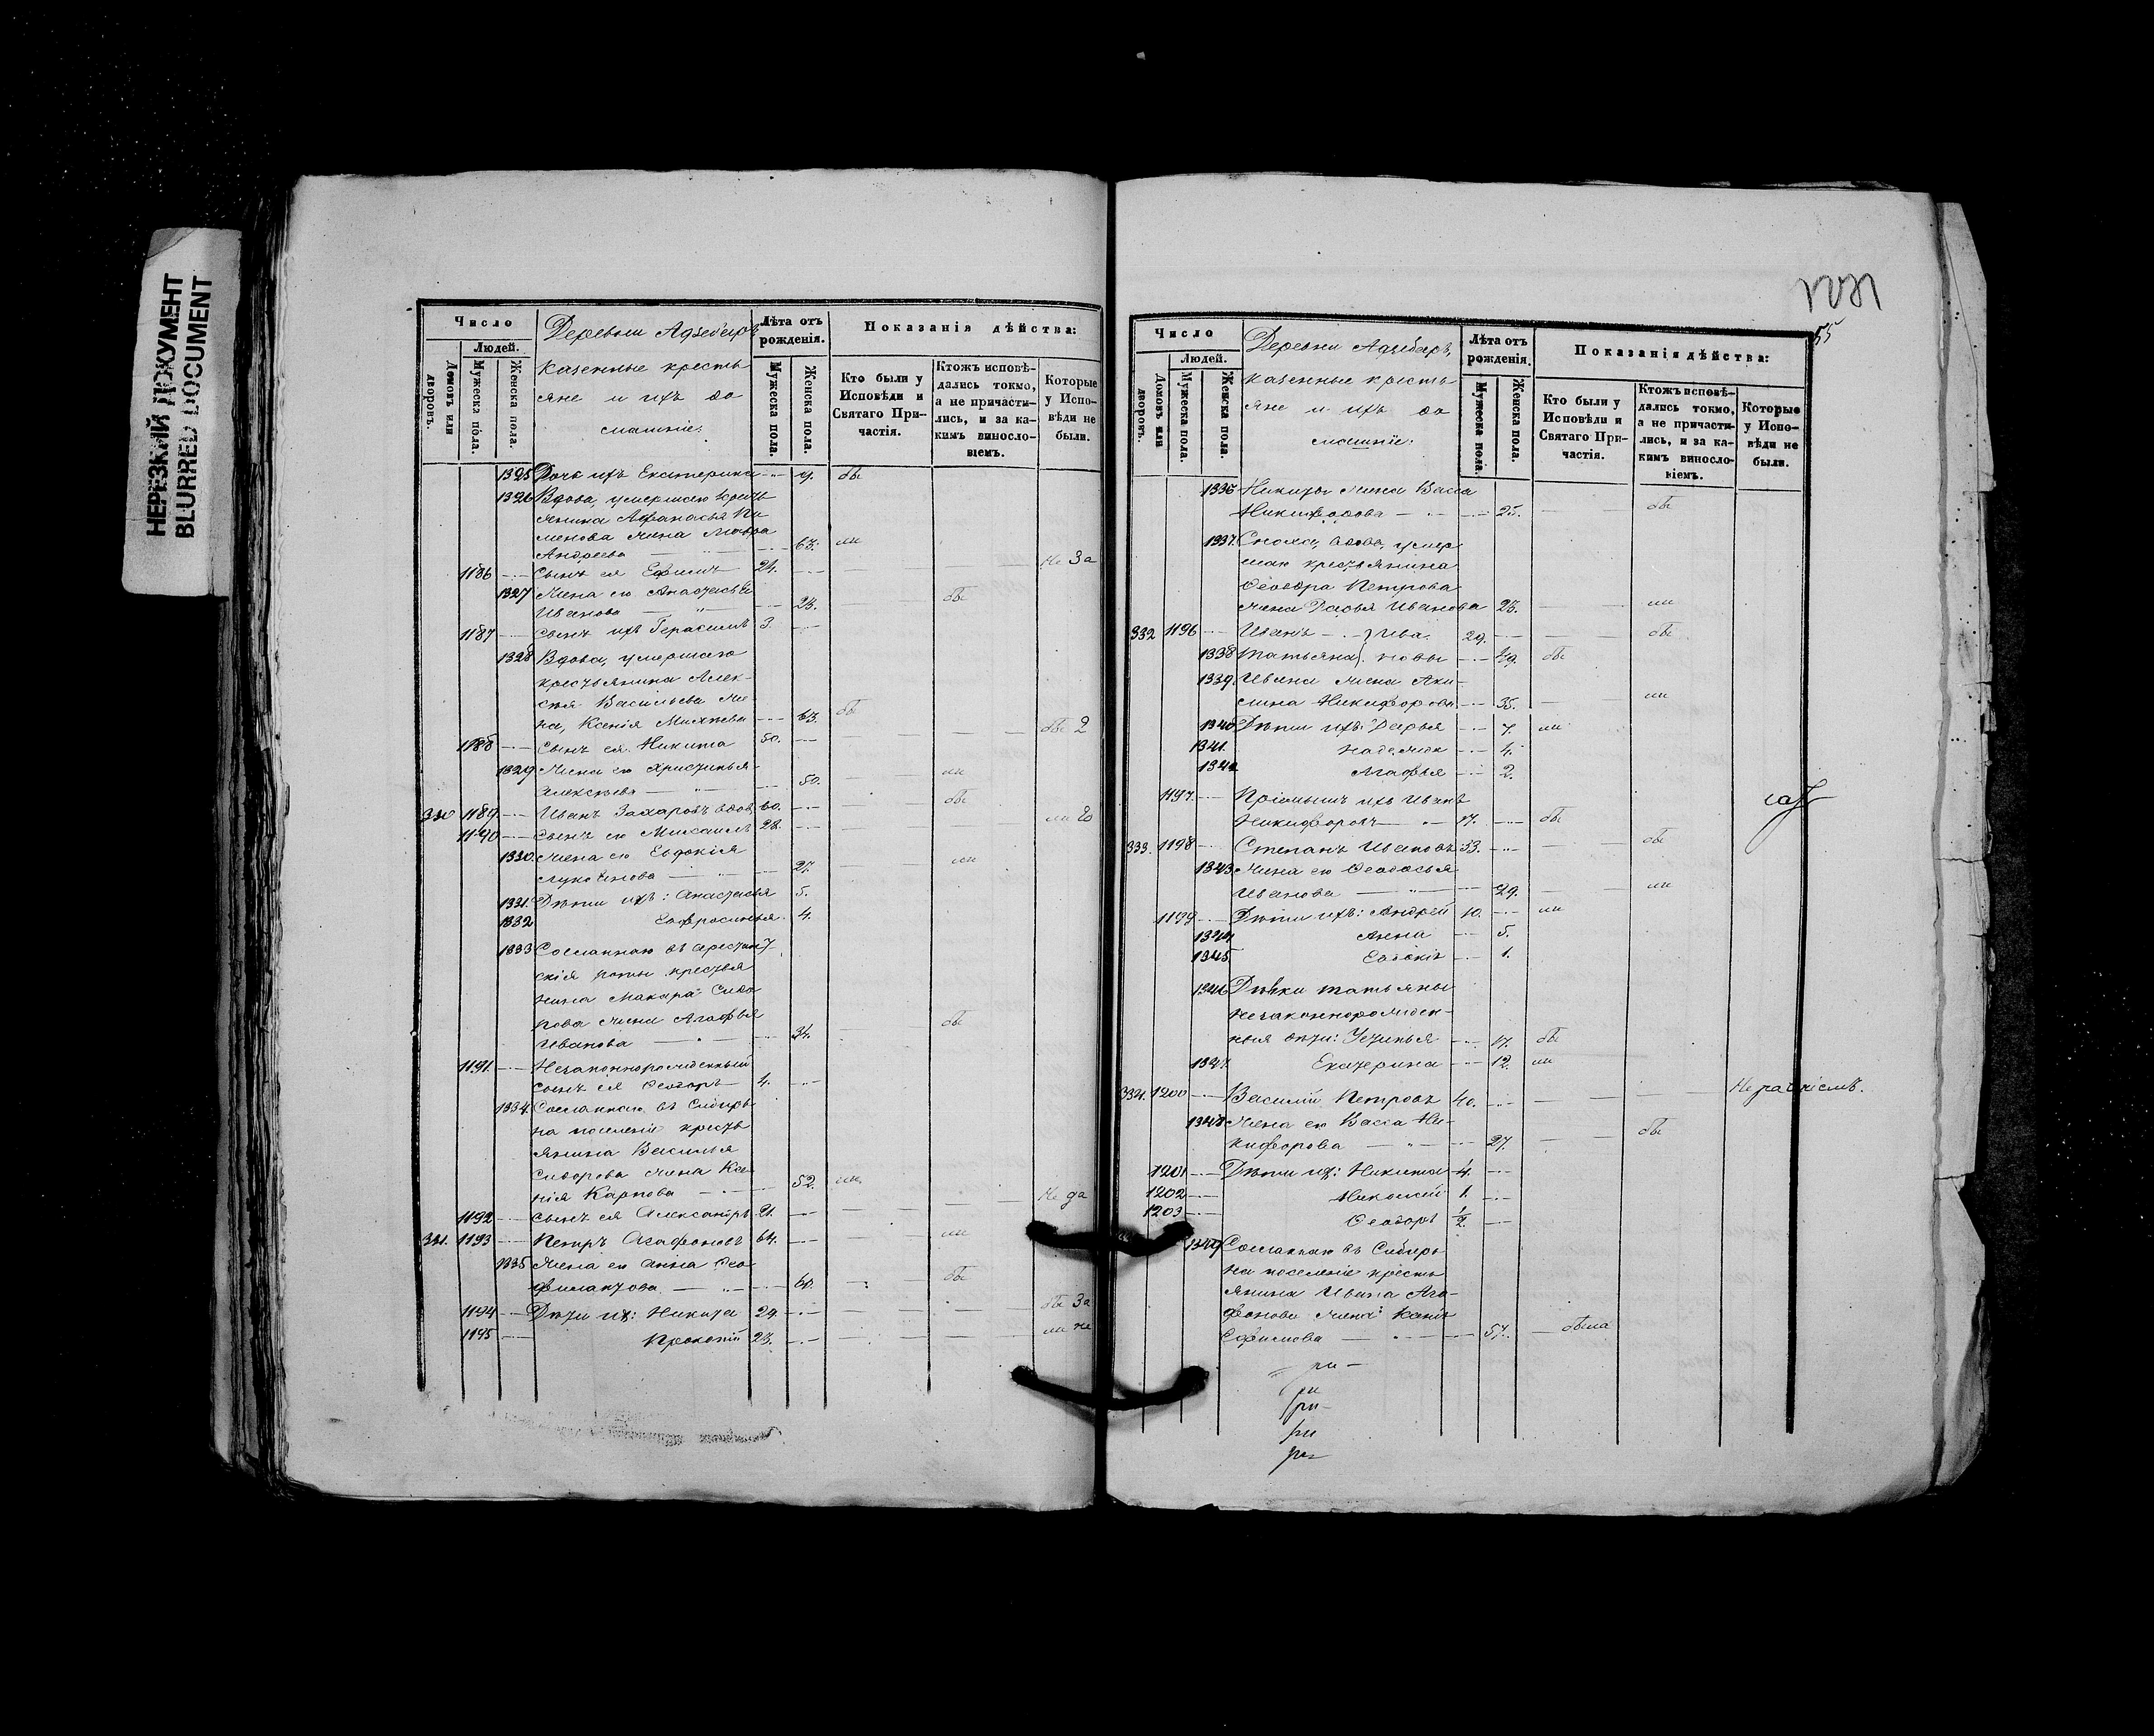 НЕРЕЗКИЙ ДОКУМЕНТ
BLURRED DOCUMENT
Число
Людей.
Домовъ или дворовъ.
Мужеска пола.
Женска пола.
Деревни
казенные кресть
яне и ихъ до
машніе:
Лѣта отъ
рожденія.
Мужеска пола.
Женска пола.
Показанія дѣйства:
Кто были у
Исповѣди и
Святаго При-
частія.
Ктожъ исповѣ-
дались токмо,
а не причасти-
лись, и за ка-
кимъ виносло-
віемъ.
Которые
у Испо-
вѣди не
были.
1325 Дочь ихъ Екатерина
1326 Вдова, умершаго кресть
янина Афанасья Пи
менова жена Мавра
Андреева 63.
1186 Сынъ ея Ефимъ 24. Не За
1327 Жена его Анастасья
Иванова 23.
1187 Сынъ ихъ Герасимъ 3.
1328 Вдова, умершаго
крестьянина Алек-
сѣя Васильева же
на, Ксенія 63.
1188 Сынъ ея Никита 50.
1329 Жена его Христинья
Алексѣева 50.
330 1189 Иванъ Захаровъ вдов. 60.
1190 Сынъ его Михаилъ 28.
1330 Жена его Евдокія
27.
1331. Дѣти ихъ: Анастасья 5.
1332 Евфросинья 4.
1333 Сосланнаго въ арестант
скія роты крестья
нина Макара Сидо
рова жена Агафья
Иванова 34.
1191. Незаконнорожденный
сынъ ея Ѳеодоръ 4.
1334. Сосланнаго въ Сибирь
на поселеніе кресть
янина Василья
Сидорова жена Ксе
нія Карпова 52.
1192 Сынъ ея Александръ 21.
331. 1193 Петръ Агафоновъ 64.
1335 Жена его Анна Ѳео
филактова 60.
1194 Дѣти их: Никита 29.
1195 Прокопій 23.
55
Число
Людей.
Домовъ или дворовъ.
Мужеска пола.
Женска пола.
Деревни
казенные кресть
яне и ихъ до
машніе:
Лѣта отъ
рожденія.
Мужеска пола.
Женска пола.
Показанія дѣйства:
Кто были у
Исповѣди и
Святаго При-
частія.
Ктожъ исповѣ-
дались токмо,
а не причасти-
лись, и за ка-
кимъ виносло-
віемъ.
Которые
у Испо-
вѣди не
были.
1336 Никиты жена Васса
Никифорова 25.
1337. Сноха, вдова, умер
шаго крестьянина
Ѳеодора Петрова
жена Дарья Иванова 25.
332 1196 Иванъ } Ива 29.
1338 Татьяна } новы
1339. Ивана жена Аки-
лина Никифорова 35.
1340 Дѣти ихъ: Дарья 7.
1341. Надежда 4.
1342 Агафья 2.
1197. Пріемышъ ихъ Иванъ
Никифоровъ 17.
333. 1198 Степанъ Ивановъ 33.
1343 Жена его Ѳеодосья
Иванова 29.
1199 Дѣти ихъ: Андрей 10.
1344 Анна 5.
1345 Евдокія 1.
1346 Дѣвки Татьяны
незаконнорожден-
ныя дѣти: Устинья 17.
1347. Екатерина 12.
334. 1200 Василій Петровъ 40.
1348 Жена его Васса Ни-
кифорова 27.
1201 Дѣти их: Никита 4.
1202 Николай 1.
1203 Ѳеодоръ 1/2
1349 Сосланнаго въ Сибирь
на поселеніе кресть
янина Ивана Ага-
фонова жена Ксенія
Ефимова 57. была